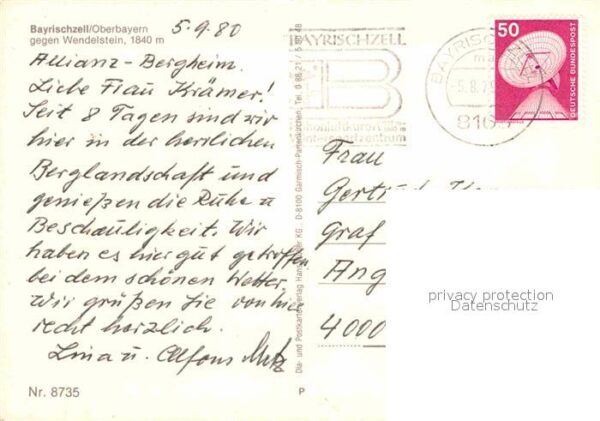 Bayrischzell/Oberbayern
gegen Wendelstein, 1840 m
5.9.80
Allianz-Bergheim.
Liebe Frau Krämer!
Seit 8 Tagen sind wir
hier in der herrlichen
Berglandschaft und
genießen die Ruhe u
Beschauligkeit. Wir
haben es hier gut getroffen
bei dem schönen Wetter,
wir grüßen Sie von hier
recht herzlich.
Lina u. Alfons
Nr. 8735
BAYRISCHZELL
B
50
DEUTSCHE BUNDESPOST
Frau
Graf
Ang
4000
P
privacy protection
Datenschutz